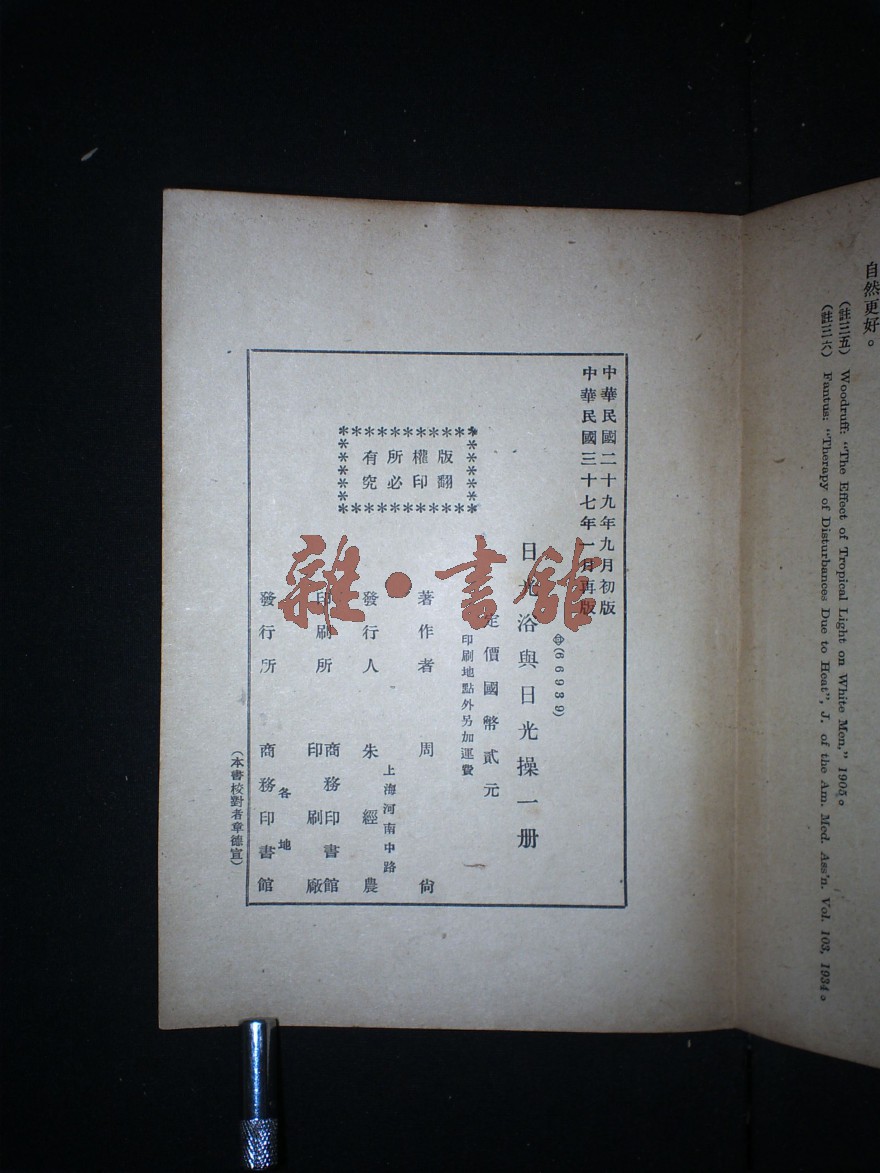 自然更好。
(註三五) Woodruff: "The Effect of Tropical Light on White Men," 1905。
(註三六) Fantus: "Therapy of Disturbances Due to Heat", J. of the Am. Med. Ass'n. Vol. 103, 1934。
中華民國二十九年九月初版
中華民國三十七年一月再版
(66939)
日光浴與日光操一册
定價國幣貳元
印刷地點外另加運費
版權所有
翻印必究
著作者 周尙
上海河南中路
發行人 朱經農
印刷所 商務印書館
印刷廠
各地
發行所 商務印書館
(本書校對者章德宣)
雜·書館